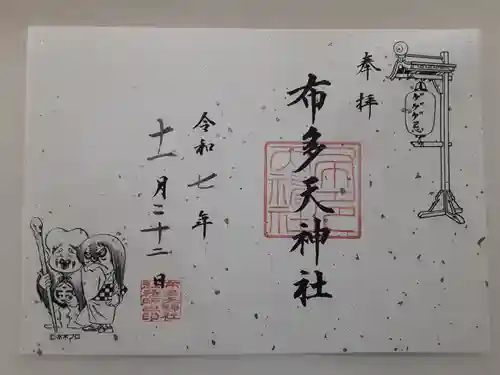 奉拝
ゲゲゲ忌
布多天神社
令和七年
十一月二十二日
©水木プロ